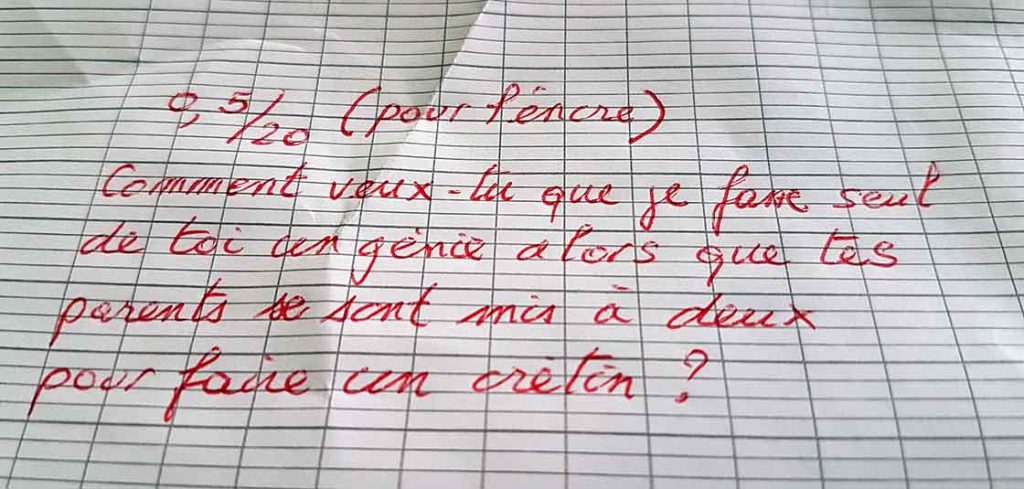 0,5/20 (pour l'encre)
Comment veux-tu que je fasse seul
de toi un génie alors que tes
parents se sont mis à deux
pour faire un crétin ?